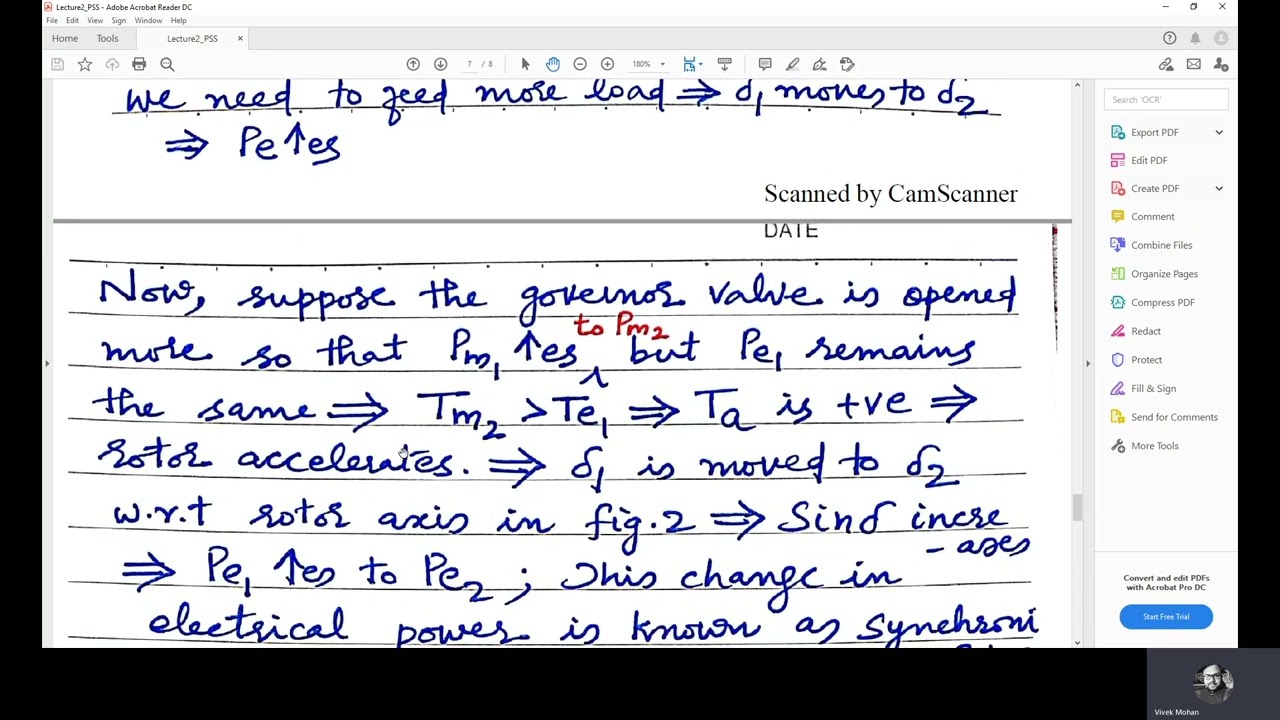 Lecture2_PSS - Adobe Acrobat Reader DC
File Edit View Sign Window Help
Home Tools Lecture2_PSS ×
7 / 8 180%
we need to feed more load ⇒ δ1 moves to δ2
⇒ Pe↑es
Scanned by CamScanner
DATE
Now, suppose the governor valve is opened
to Pm2
more so that Pm1 ↑es but Pe1 remains
the same ⇒ Tm2 > Te1 ⇒ Ta is +ve ⇒
rotor accelerates. ⇒ δ1 is moved to δ2
w.r.t rotor axis in fig.2 ⇒ Sinδ incre
- ases
⇒ Pe1 ↑es to Pe2 ; This change in
electrical power is known as synchroni
Search 'OCR'
Export PDF
Edit PDF
Create PDF
Comment
Combine Files
Organize Pages
Compress PDF
Redact
Protect
Fill & Sign
Send for Comments
More Tools
Convert and edit PDFs
with Acrobat Pro DC
Start Free Trial
Vivek Mohan